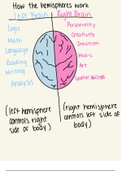 How the hemispheres work
Left Brain
Right Brain
Logic
Math
Language
Reading
Writing
Analysis
Personality
Creativity
Intuition
Music
Art
Spatial Abilities
(left hemisphere
controls right
side of
body)
(right hemisphere
controls left side of
body)